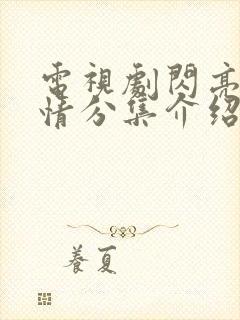 電視劇閃亮
情分集介紹
養夏